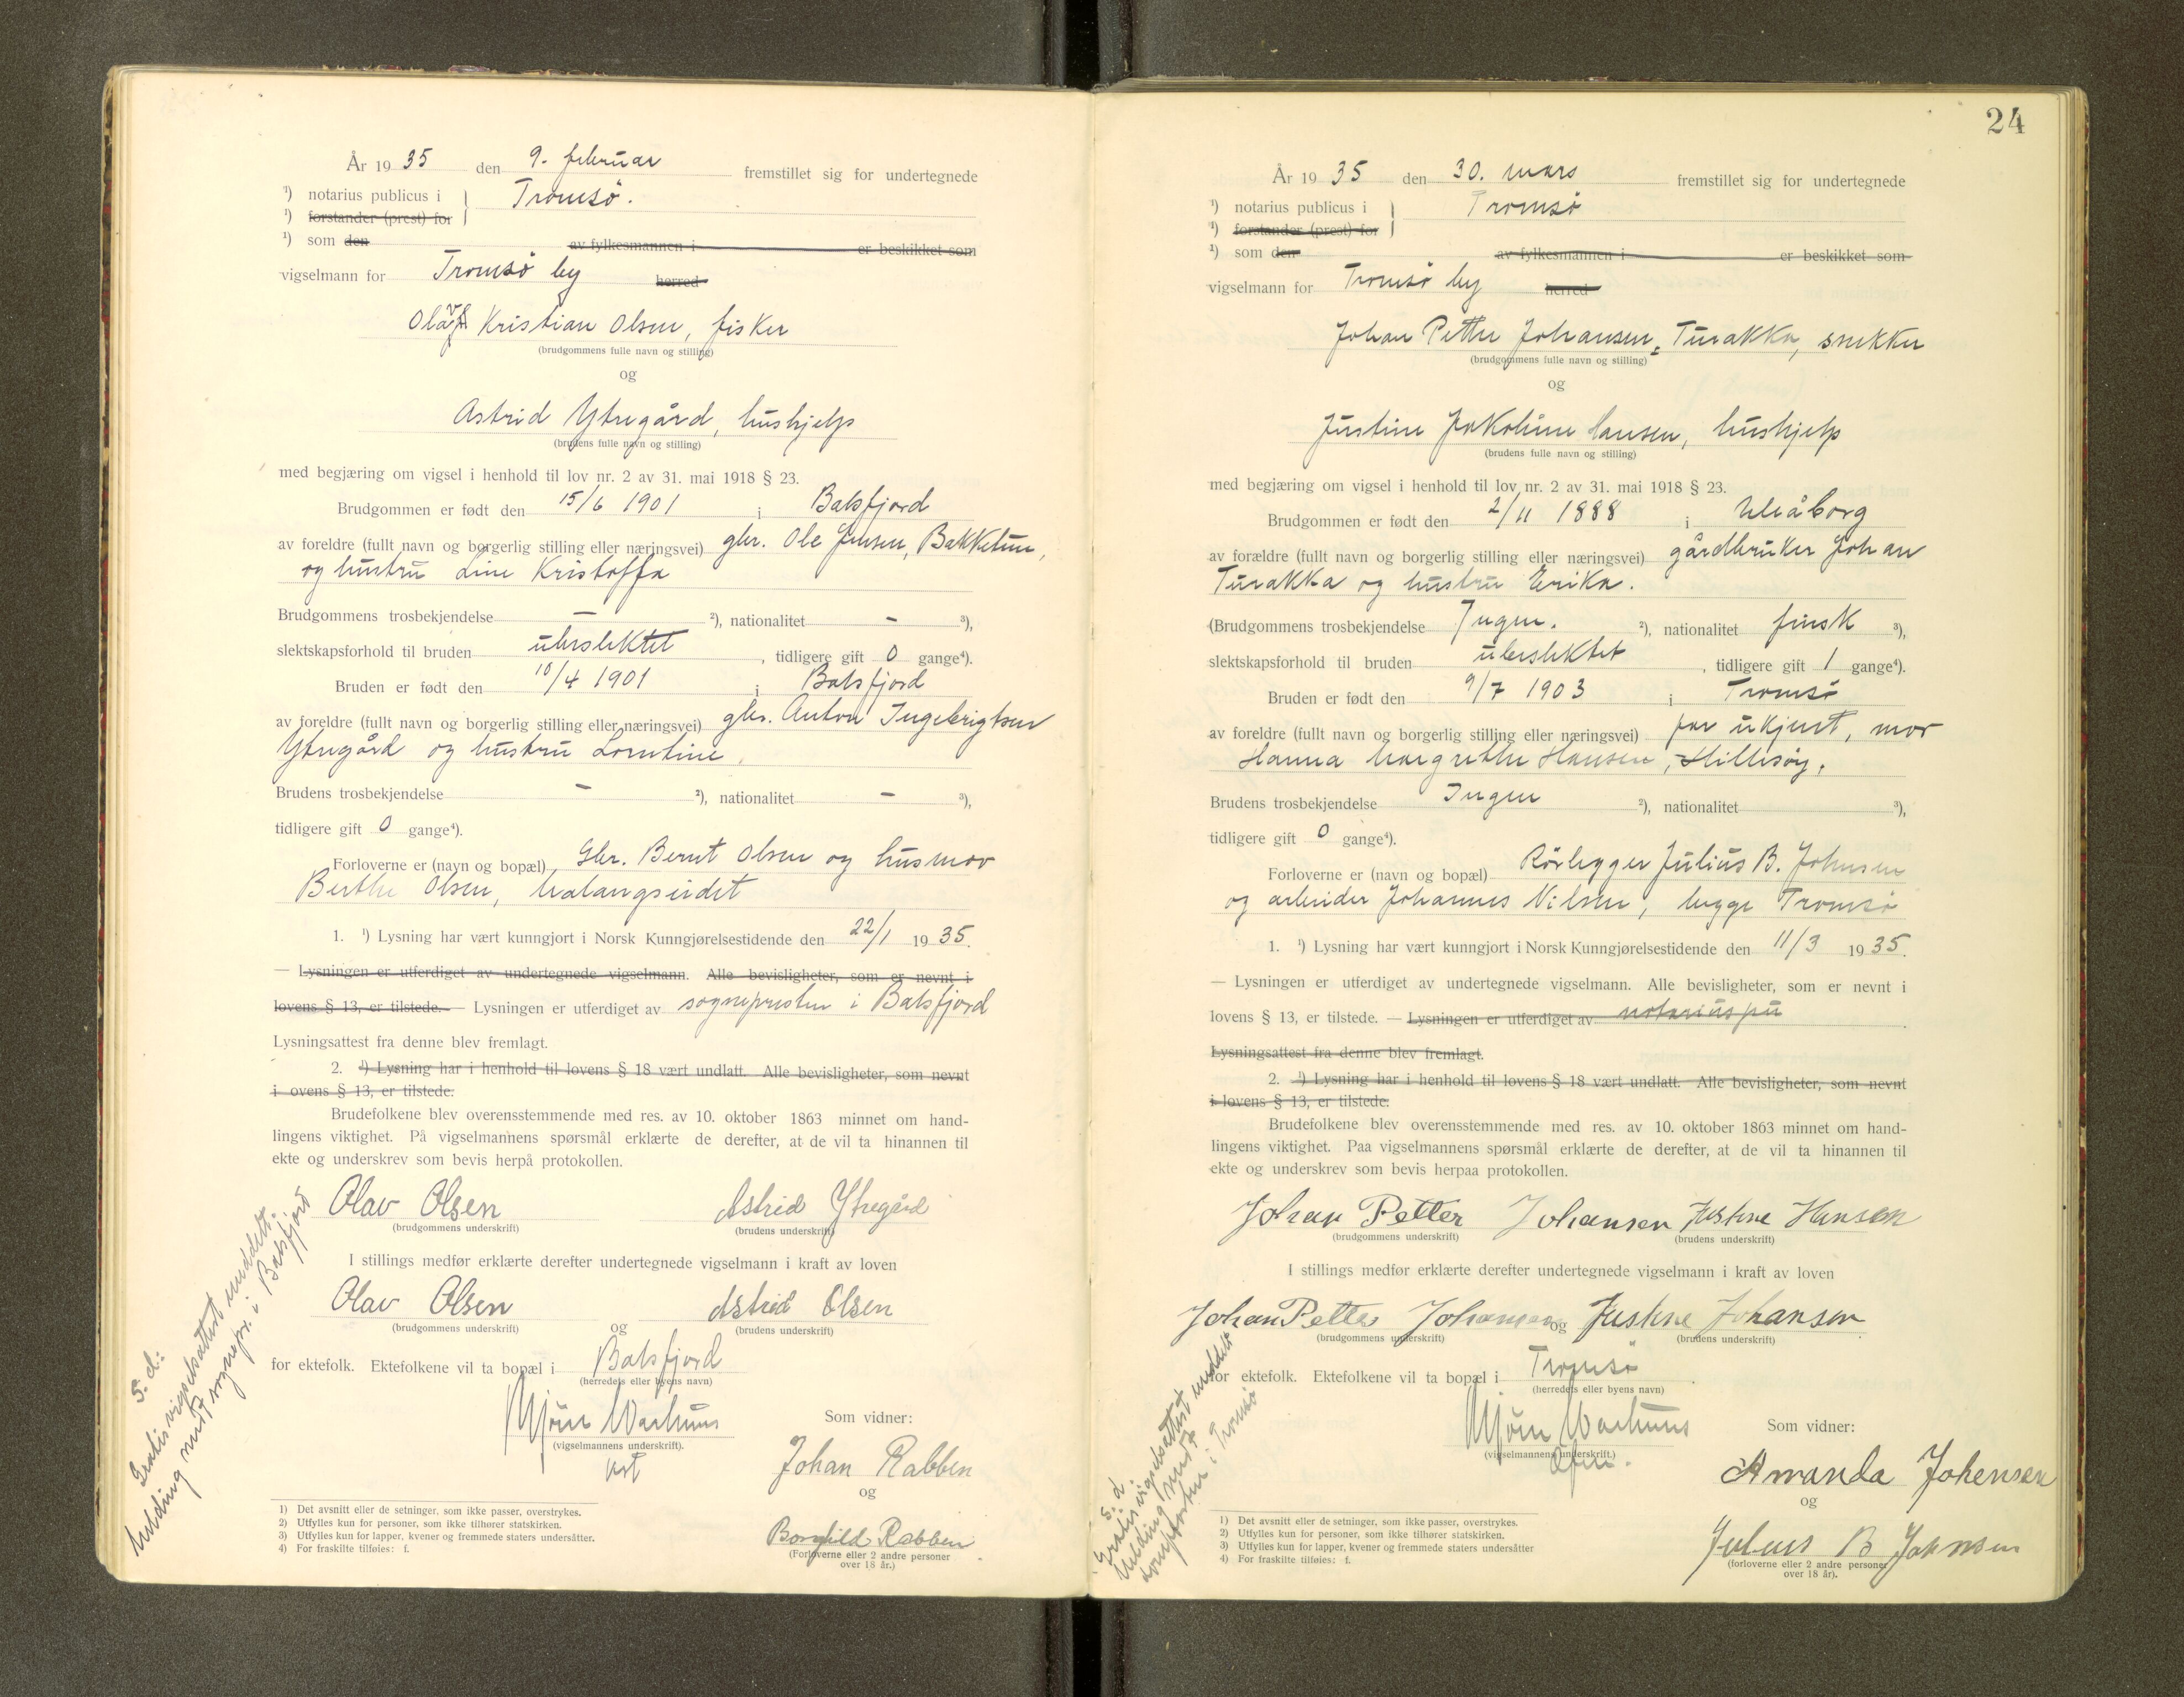 År 1935 den 9. februar fremstillet sig for undertegnede
¹) notarius publicus i Tromsö.
¹) forstander (prest) for
¹) som den av fylkesmannen i er beskikket som
vigselmann for Tromsö by herred
Olav Kristian Olsen, fisker
(brudgommens fulle navn og stilling)
og
Astrid Ytregård, hushjelp
(brudens fulle navn og stilling)
med begjæring om vigsel i henhold til lov nr. 2 av 31. mai 1918 § 23.
Brudgommen er født den 15/6 1901 i Balsfjord
av foreldre (fullt navn og borgerlig stilling eller næringsvei) gbr. Ole Jensen, Bakketun,
og hustru Line Kristoffa
Brudgommens trosbekjendelse — ²), nationalitet - ³),
slektskapsforhold til bruden ubeslektet, tidligere gift 0 gange⁴).
Bruden er født den 10/4 1901 i Balsfjord
av foreldre (fullt navn og borgerlig stilling eller næringsvei) gbr. Anton Ingebrigtsen
Ytregård og hustru Lorntine.
Brudens trosbekjendelse - ²), nationalitet - ³),
tidligere gift 0 gange⁴).
Forloverne er (navn og bopæl) Gbr. Bernt Olsen og husmor
Berthe Olsen, Malangseidet
1. ¹) Lysning har vært kunngjort i Norsk Kunngjørelsestidende den 22/1 1935.
— Lysningen er utferdiget av undertegnede vigselmann. Alle bevisligheter, som er nevnt i
lovens § 13, er tilstede. — Lysningen er utferdiget av sognepresten i Balsfjord
Lysningsattest fra denne blev fremlagt.
2. ¹) Lysning har i henhold til lovens § 18 vært undlatt. Alle bevisligheter, som nevnt
i ovens § 13, er tilstede.
Brudefolkene blev overensstemmende med res. av 10. oktober 1863 minnet om hand-
lingens viktighet. På vigselmannens spørsmål erklærte de derefter, at de vil ta hinannen til
ekte og underskrev som bevis herpå protokollen.
Olav Olsen Astrid Ytregård
(brudgommens underskrift) (brudens underskrift)
I stillings medfør erklærte derefter undertegnede vigselmann i kraft av loven
Olav Olsen og Astrid Olsen
(brudgommens underskrift) (brudens underskrift)
for ektefolk. Ektefolkene vil ta bopæl i Balsfjord
(herredets eller byens navn)
(vigselmannens underskrift).
Som vidner:
Johan Rabben
og
Borghild Rabben
(Forloverne eller 2 andre personer
over 18 år.)
S. d.:
Gratis vigselsattest meddelt.
Melding sendt sognepr. i Balsfjord
1) Det avsnitt eller de setninger, som ikke passer, overstrykes.
2) Utfylles kun for personer, som ikke tilhører statskirken.
3) Utfylles kun for lapper, kvener og fremmede staters undersåtter.
4) For fraskilte tilføies: f.
24
År 1935 den 30. mars fremstillet sig for undertegnede
¹) notarius publicus i Tromsö
¹) forstander (prest) for
¹) som den av fylkesmannen i er beskikket som
vigselmann for Tromsö by herred
Johan Petter Johansen=Turakka, snekker
(brudgommens fulle navn og stilling)
og
Justine Jakobine Hansen, hushjelp
(brudens fulle navn og stilling)
med begjæring om vigsel i henhold til lov nr. 2 av 31. mai 1918 § 23.
Brudgommen er født den 2/11 1888 i Uleåborg
av forældre (fullt navn og borgerlig stilling eller næringsvei) gårdbruker Johan
Turakka og hustru Erika.
(Brudgommens trosbekjendelse Ingen. ²), nationalitet finsk ³),
slektskapsforhold til bruden ubeslektet, tidligere gift 1 gange⁴).
Bruden er født den 9/7 1903 i Tromsö
av foreldre (fullt navn og borgerlig stilling eller næringsvei) far ukjent, mor
Hanna Margrethe Hansen, Hillesöy.
Brudens trosbekjendelse Ingen ²), nationalitet ³),
tidligere gift 0 gange⁴).
Forloverne er (navn og bopæl) Rörlegger Julius B. Johnsen
og arbeider Johannes Nilsen, begge Tromsö
1. ¹) Lysning har vært kunngjort i Norsk Kunngjørelsestidende den 11/3 1935.
— Lysningen er utferdiget av undertegnede vigselmann. Alle bevisligheter, som er nevnt i
lovens § 13, er tilstede. — Lysningen er utferdiget av notarius pu
Lysningsattest fra denne blev fremlagt.
2. ¹) Lysning har i henhold til lovens § 18 vært undlatt. Alle bevisligheter, som nevnt
i lovens § 13, er tilstede.
Brudefolkene blev overensstemmende med res. av 10. oktober 1863 minnet om hand-
lingens viktighet. Paa vigselmannens spørsmål erklærte de derefter, at de vil ta hinannen til
ekte og underskrev som bevis herpaa protokollen.
Johan Petter Johansen Justine Hansen
(brudgommens underskrift) (brudens underskrift)
I stillings medfør erklærte derefter undertegnede vigselmann i kraft av loven
Johan Petter Johansen og Justine Johansen
(brudgommens underskrift) (brudens underskrift)
for ektefolk. Ektefolkene vil ta bopæl i Tromsö
(herredets eller byens navn)
(vigselmannens underskrift.)
Som vidner:
Amanda Johensen
og
Julius B Johnsen
(forloverne eller 2 andre personer
over 18 år).
S. d.
Gratis vigselsattest meddelt
Melding sendt
sognepresten i Tromsö
1) Det avsnitt eller de setninger, som ikke passer, overstrykes.
2) Utfylles kun for personer, som ikke tilhører statskirken.
3) Utfylles kun for lapper, kvener og fremmede staters undersåtter
4) For fraskilte tilføies: f.